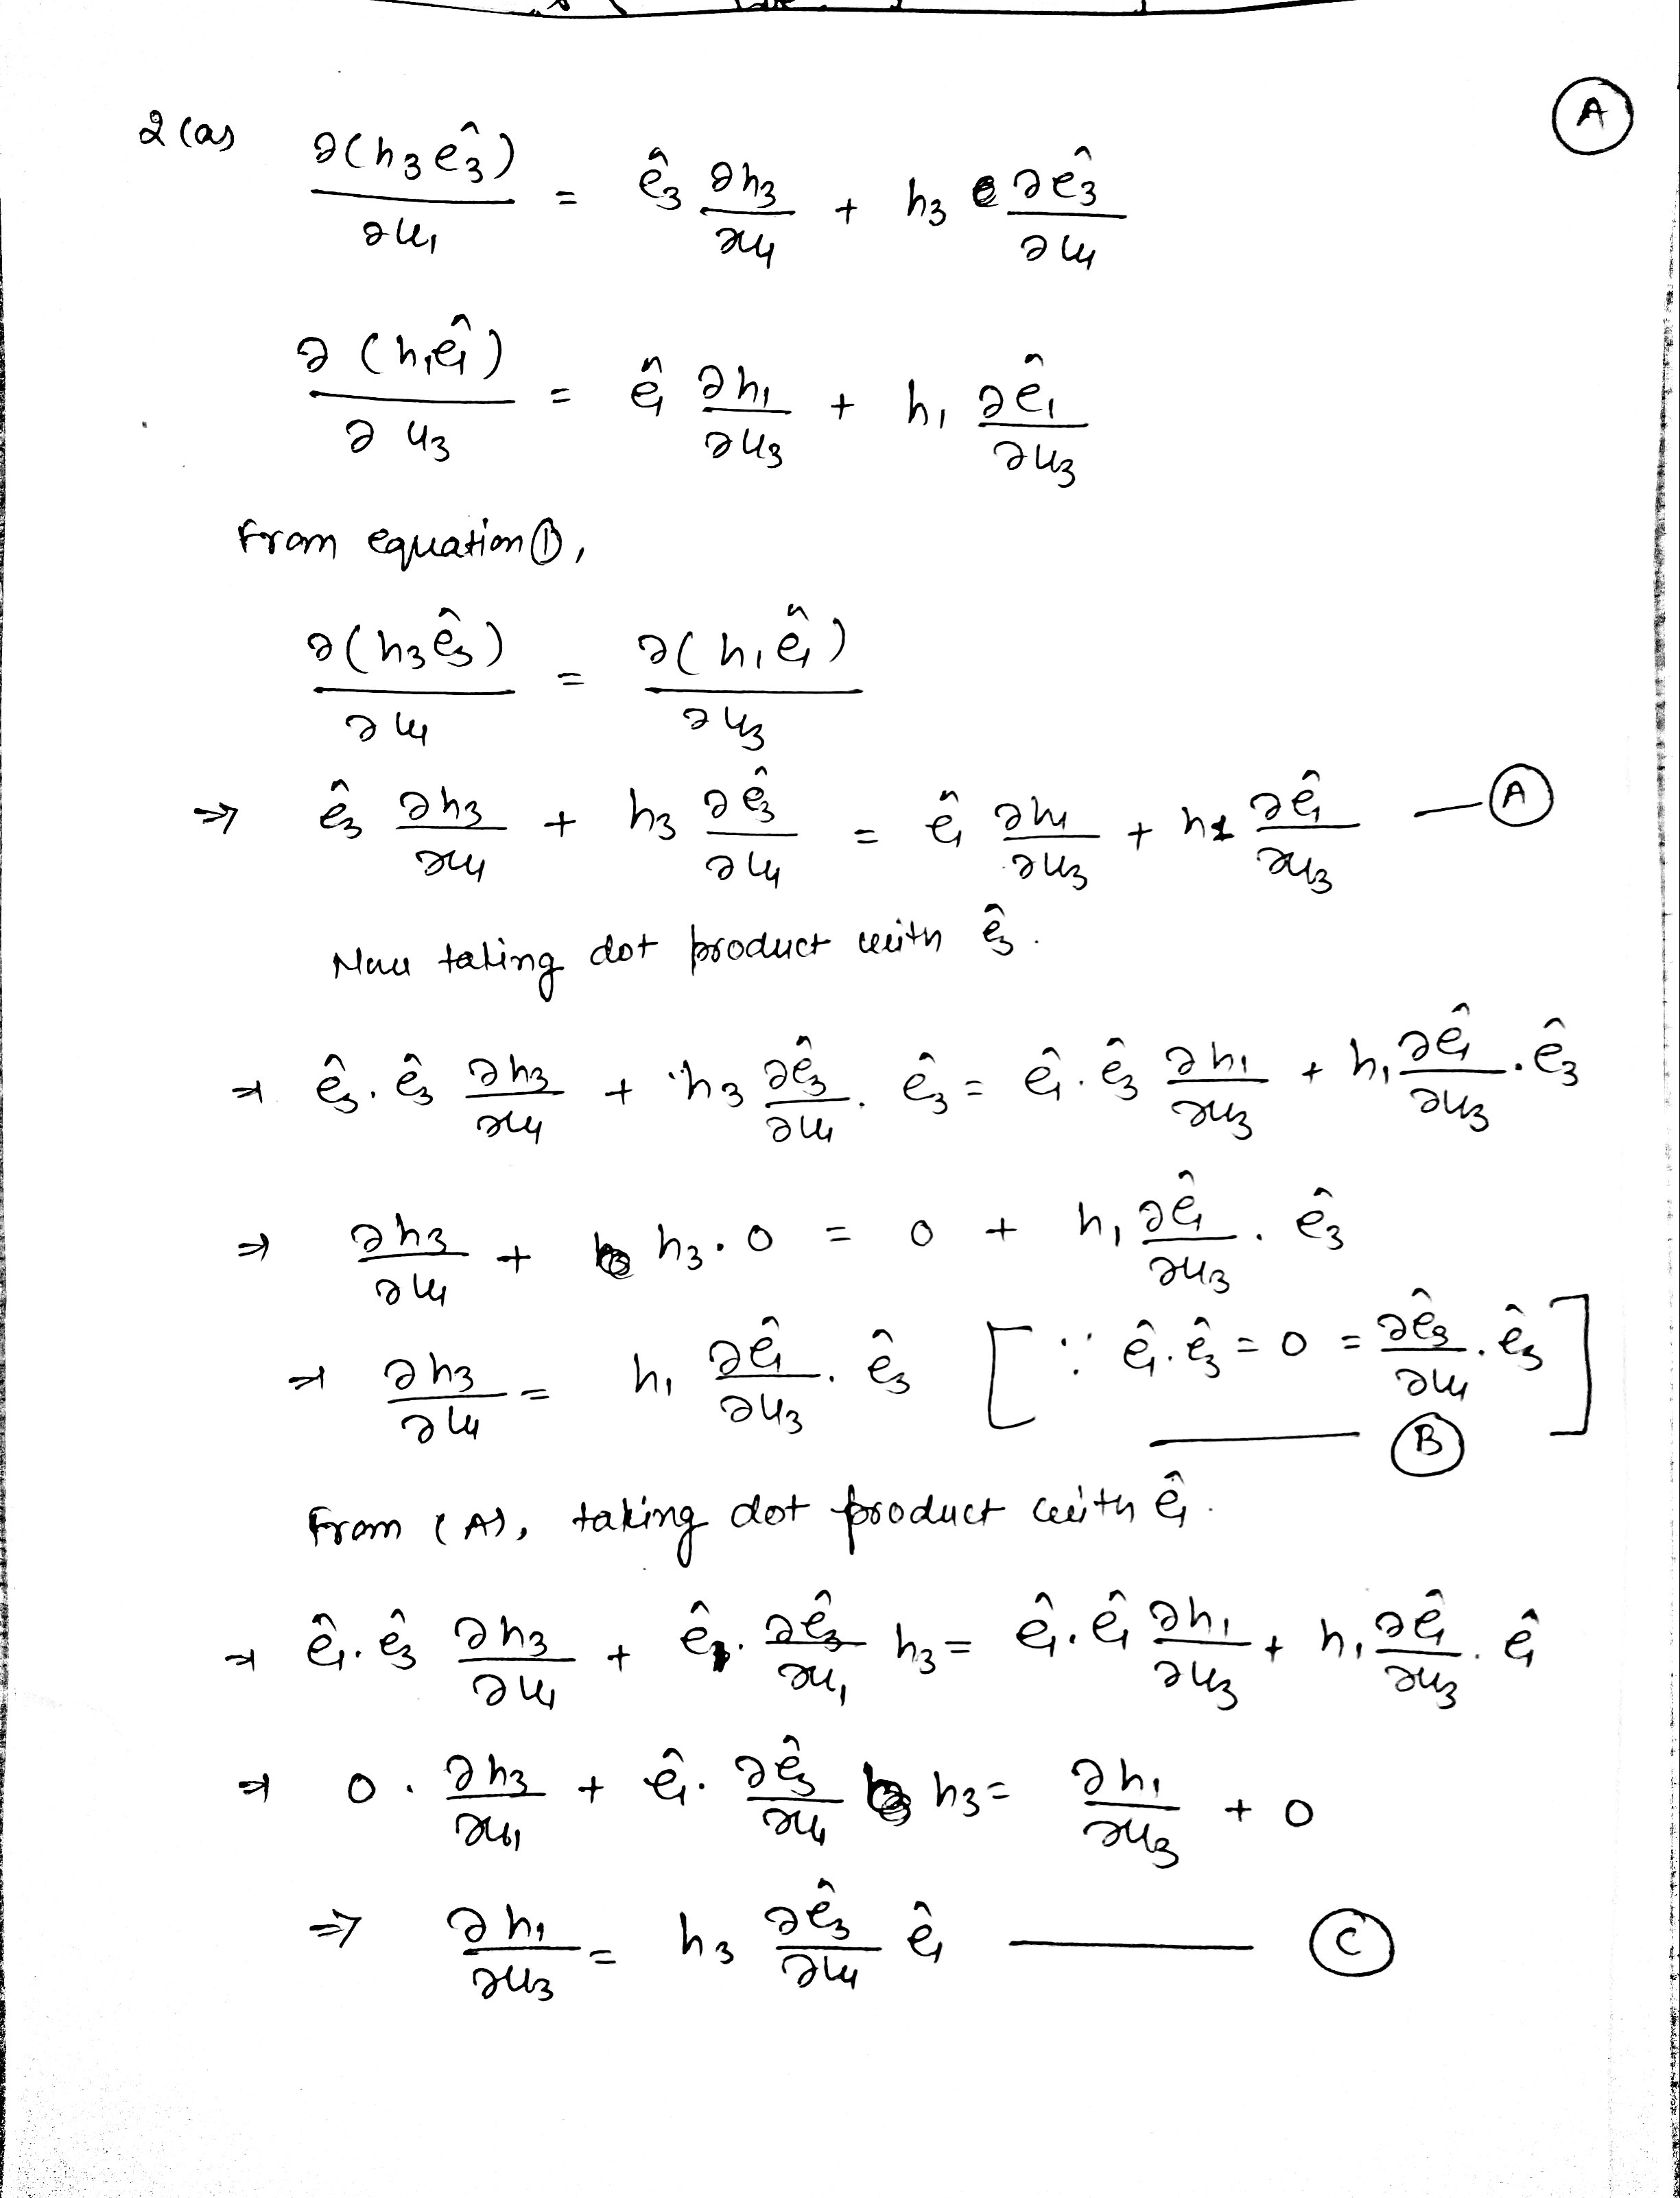 A
2(a) ∂(h₃ê₃)/∂u₁ = ê₃ ∂h₃/∂u₁ + h₃ ∂ê₃/∂u₁
∂(h₁ê₁)/∂u₃ = ê₁ ∂h₁/∂u₃ + h₁ ∂ê₁/∂u₃
From equation ①,
∂(h₃ê₃)/∂u₁ = ∂(h₁ê₁)/∂u₃
⇒ ê₃ ∂h₃/∂u₁ + h₃ ∂ê₃/∂u₁ = ê₁ ∂h₁/∂u₃ + h₁ ∂ê₁/∂u₃ — A
Now taking dot product with ê₃.
⇒ ê₃.ê₃ ∂h₃/∂u₁ + h₃ ∂ê₃/∂u₁ . ê₃ = ê₁.ê₃ ∂h₁/∂u₃ + h₁ ∂ê₁/∂u₃ . ê₃
⇒ ∂h₃/∂u₁ + h₃.0 = 0 + h₁ ∂ê₁/∂u₃ . ê₃
⇒ ∂h₃/∂u₁ = h₁ ∂ê₁/∂u₃ . ê₃ [∵ ê₁.ê₃ = 0 = ∂ê₃/∂u₁ . ê₃]
— B
From (A), taking dot product with ê₁.
⇒ ê₁.ê₃ ∂h₃/∂u₁ + ê₁. ∂ê₃/∂u₁ h₃ = ê₁.ê₁ ∂h₁/∂u₃ + h₁ ∂ê₁/∂u₃ . ê₁
⇒ 0 . ∂h₃/∂u₁ + ê₁. ∂ê₃/∂u₁ h₃ = ∂h₁/∂u₃ + 0
⇒ ∂h₁/∂u₃ = h₃ ∂ê₃/∂u₁ ê₁ — C